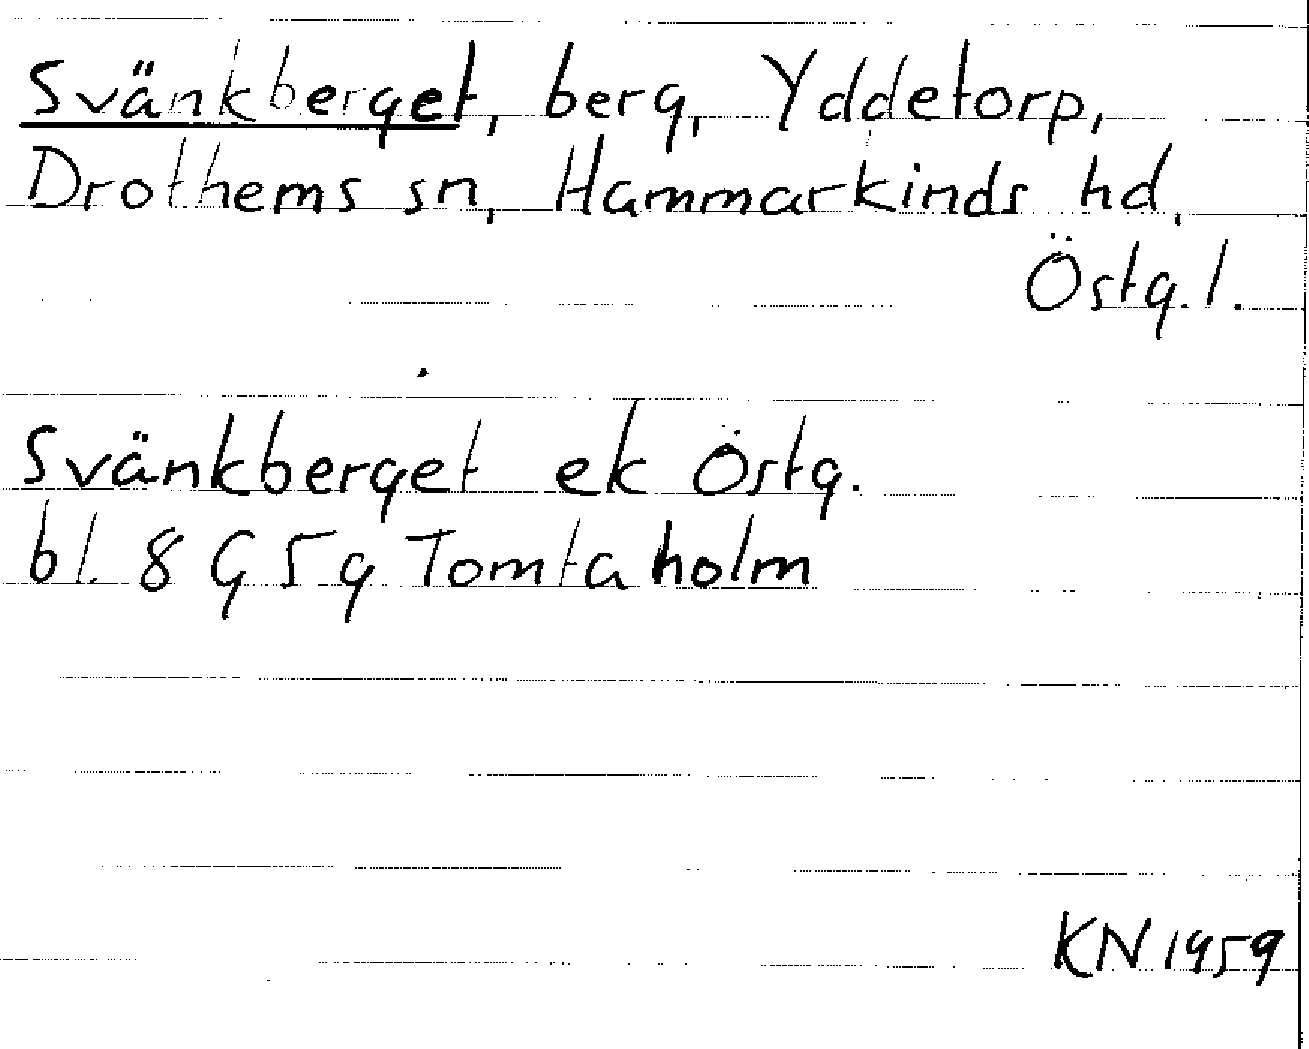 Svänkberget, berg, Yddetorp,
Drothems sn, Hammarkinds hd,
Östg. l.
Svänkberget ek Östg.
bl. 8 G 5 g Tomtaholm
KN 1959